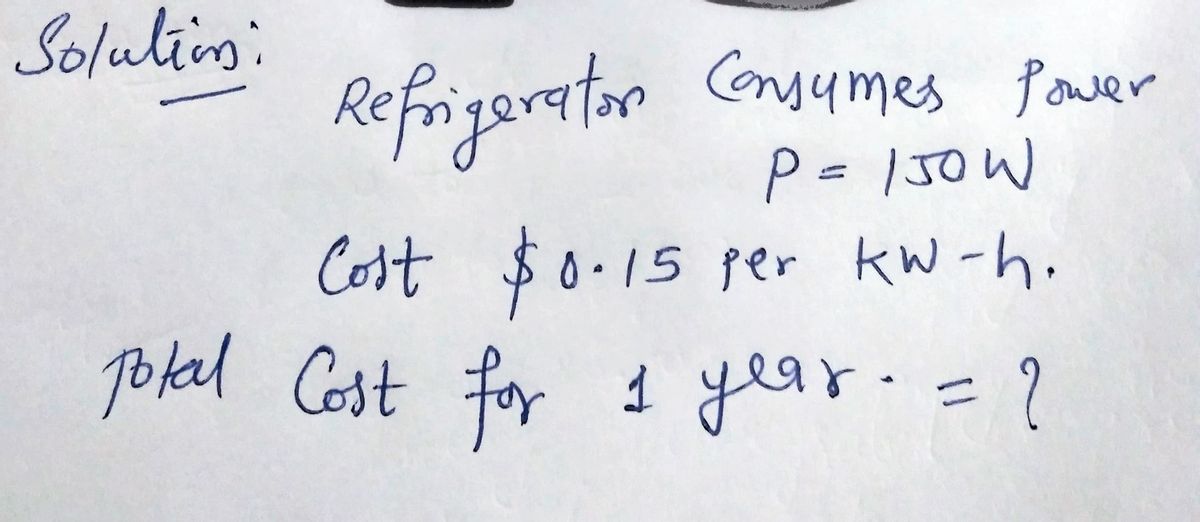 Solution:
Refrigerator Consumes Power
P = 150W
Cost $0.15 per kW-h.
Total Cost for 1 year. = ?